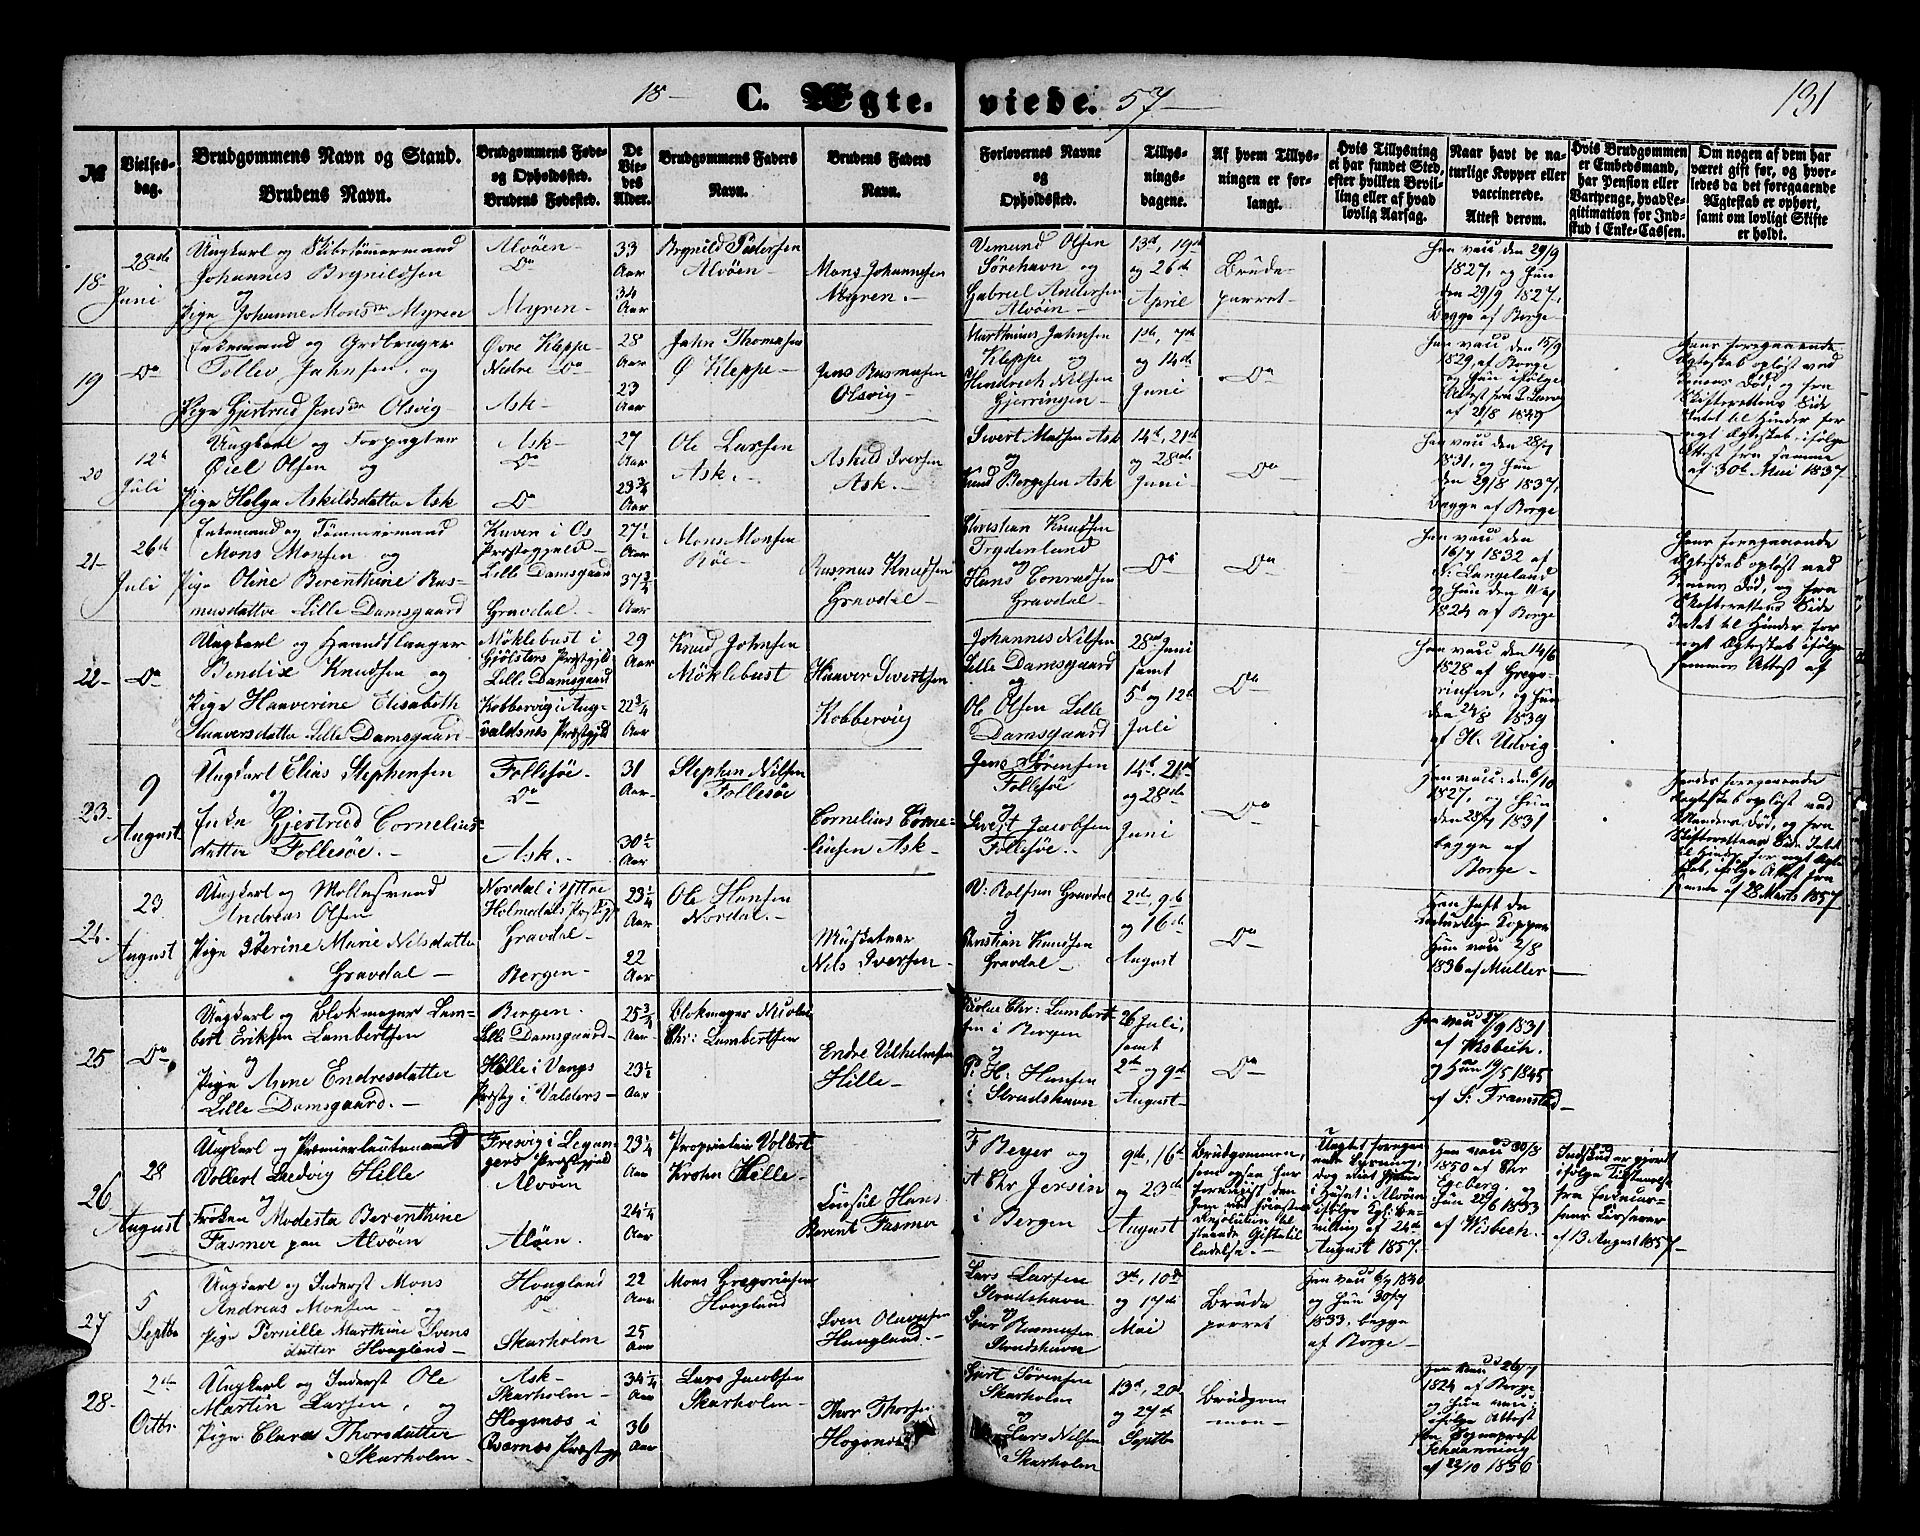 18- C. Ægte. viede. 57- 131
№
Vielses-
dag.
Brudgommens Navn og Stand.
Brudens Navn.
Brudgommens Føde-
og Opholdssted.
Brudens Fødested.
De
Vie-
des
Alder.
Brudgommens Faders
Navn.
Brudens Faders
Navn.
Forlovernes Navne
og
Opholdssted.
Tillys-
nings-
dagene.
Af hvem Tillys-
ningen er for-
langt.
Hvis Tillysning
ei har fundet Sted,
efter hvilken Bevil-
ling eller af hvad
lovlig Aarsag.
Naar havt de na-
turlige Kopper eller
vaccinerede.
Attest derom.
Hvis Brudgommen
er Embedsmand,
har Pension eller
Vartpenge, hvad Le-
gitimation for Ind-
skud i Enke-Cassen.
Om nogen af dem har
været gift før, og hvor-
ledes da det foregaaende
Ægteskab er ophørt,
samt om lovligt Skifte
er holdt.
18-
28de
Juni
Ungkarl og Skibstømmermand
Johannes Brynildsen
og
Pige Johanne Monsdr Myren
Alvøen-
Do
Myren-
33
Aar
34
Aar
Brynild Pedersen
Alvøen-
Mons Johannesen
Myren.-
Vemund Olsen
Sørehavn og
Gabriel Andersen
Alvøen
13de, 19de
og 26de
April
Brude-
parret-
Han vacc den 29/9
1827, og Hun
den 29/9 1827,
Begge af Borge-
19
Do
Enkemand og Grdbruger
Tollev Jahnsen, og
Pige Gjertrud Jensdr Olsvig-
Øvre Kleppe-
Nedre Do-
Ask-
28
Aar
23
Aar
Jahn Thomasen
Ø Kleppe-
Jens Rasmusen
Olsvig-
Marthinus Jahnsen
Kleppe og
Hendrich Nilsen
Gjerringen
1ste, 7de
og 14de
Juni
-Do
Han vacc den 15/9
1829, af Borge
og Hun ifølge
Attest fra
af 21/8 1849
Hans foregaaende
Ægteskab opløst ved
Konens Død, og fra
Skifterettens Side
Intet til Hinder for
nyt Ægteskab, ifølge
Attest fra samme
af 30te Mai 1857.
20
12te
Juli
Ungkarl og Forpagter
Øiel Olsen og
Pige Helga Askildsdatter Ask
Ask-
Do
Do
27
Aar
23 3/4
Aar
Ole Larsen
Ask.-
Askild Iversen
Ask.-
Sivert Matsen Ask
og
Knud Børgesen Ask
14de, 21de
og 28de
Juni-
-Do
Han vacc den 28/7
1831, og Hun
den 29/8 1837,
Begge af Borge
21-
26de
Juli
Enkemand og Tømmermand
Mons Monsen og
Pige Oline Berenthine Ras-
musdatter Lille Damsgaard
Kuven i Os
Præstegjeld-
Lille Damsgaard
Gravdal.-
27 1/2
Aar
37 3/4
Aar
Mons Monsen
Røe-
Rasmus Knudsen
Gravdal-
Christian Knudsen
Frydenlund
og
Hans Conradsen
Gravdal-
-Do-
-Do-
Han vacc den
16/7 1832 af
S: Langeland
og Hun den
1824 af Borge
Hans foregaaende
Ægteskab opløst ved
Konens Død, og fra
Skifterettens Side
Intet til Hinder for
nyt Ægteskab ifølge
sammes Attest af
22-
Do-
Ungkarl og Haandtlanger
Bendix Knudsen og
Pige Haaverine Elisabeth
Haaversdatter Lille Damsgaard-
Møklebust i
Gjølsters Præstgjld
Lille Damsgaard
Kobbervig i Aug-
valdsnes Præstgjld
29
Aar
22 3/4
Aar
Knud Johnsen
Møklebust
Haaver Sivertsen
Kobbervig
Johannes Nilsen
Lille Damsgaard
og
Ole Olsen Lille
Damsgaard
28de Juni
samt
5te og 12te
Juli
-Do
Han vacc den 14/6
1828 af Grego-
riusen, og Hun
den 24/8 1839
af H. Udvig
23-
9
August
Ungkarl Elias Stephensen
og
Enke Gjertrud Cornelius-
datter Follesøe.-
Follesøe-
Do-
Ask.-
31
Aar-
30 1/2
Aar
Stephen Nilsen
Follesøe
Cornelius Corne-
liusen Ask-
Jens Sørensen
Follesøe
og
Sivert Jacobsen
Follesøe.-
14de, 21de
og 28de
Juni
-Do
Han vacc: den 6/10
1827, og Hun
den 28/7 1831
begge af
Borge-
Hendes foregaaende
Ægteskab opløst ved
Mandens Død, og fra
Skifterettens Side Intet
til Hinder for nyt Ægte-
skab, ifølge Attest fra
samme af 28 Marts 1857
24-
23
August
Ungkarl og Møllesvend
Andreas Olsen
Pige Severine Marie Nilsdatter
Gravdal-
Nordal i Yttre
Holmedals Præstegjld
Gravdal-
Bergen-
23 1/4
Aar
22
Aar
Ole Hansen
Nordal.-
Musketeer
Nils Iversen-
V: Rolfsen Gravdal
og
Christian Knudsen
Gravdal-
2de, 9de
og 16de
August
-Do
Han haft de
naturlige Kopper
Hun vacc 2/8
1836 af Müller-
25
Do
Ungkarl og Blokmager Lam-
bert Eriksen Lambertsen
og
Pige Anne Endresdatter
Lille Damsgaard.-
Bergen.
Lille Damsgaard-
Hille i Vangs
Præstg i Valders-
25 3/4
Aar
23 1/2
Aar
Blokmager Nicolai
Chr: Lambertsen
Endre Vilhelmsen
Hille-
Nicolai Chr: Lambert-
sen i Bergen
og
P: H: Hansen
i Strudshavn
26 Juli,
samt
2de og 9de
August-
-Do-
Han vacc 27/9 1831
af Wisbech.
og Hun 19/5 1845
af S: Framstad-
26
28
August
Ungkarl og Premierleutenand
Vollert Ludvig Hille
og
Frøken Modesta Berenthine
Fasmer paa Alvøen
Fresvig i Legan-
gers Præstegjeld
Alvøen
Alvøen-
23 1/4
Aar
24 1/4
Aar
Proprietair Vollert
Krohn Hille-
Consul Hans
Berent Fasmer
F Beyer og
A Chr Jersin
i Bergen
9de, 16de
og 23de
August
Brudgommen,
som ogsaa har
forevist den
ham ved høieste
Resolution til
staaede Giftetil
ladelse.-
Uagtet foregaa-
ende Lysning,
dog viet Hjemme
i Huset i Alvøen
ifølge Kgl: Be-
villing af 24de
August 1857.-
Han vacc 30/8
1850 af Chr
Egeberg, og
Hun 22/6 1853
af Wisbech.-
Indskud er gjort
ifølge Tilstaaelse
fra Enkecas-
sens Casserer
af 13 August 1857-
27
5
Septbr
Ungkarl og Inderst Mons
Andreas Monsen- og
Pige Pernille Marthine Svens
datter Hougland-
Hougland
Do
Skarholm
22
Aar
25
Aar
Mons Gregoriusen
Hougland
Sven Olavesen
Haugland.-
Lars Larsen
Strudshavn
og
Rasmusen
Strudshavn
3de, 10de
og 17de
Mai
Brude
parret
Han vacc 6/7 1840
og Hun 30/7
1833, begge
af Borge-
28-
2den
Octbr
Ungkarl og Inderst Ole
Martin Larsen, og
Pige Clara Thorsdatter
Skarholm-
Ask-
Skarholm-
Hogsnæs i
Qværnæs Præstegj
34 1/4
Aar
36
Aar
Lars Jacobsen
Skarholm-
Thor Thorsen
Hogsnæs
Sørensen
Skarholm
og
Lars Nilsen
Skarholm
13de, 20de
og 27de
Septbr
Brudgom
men-
Han vacc 26/7
1824 af Borge
og Hun vacc:
ifølge Attest
fra Sognepræst
Schanning
af 22/10 1856